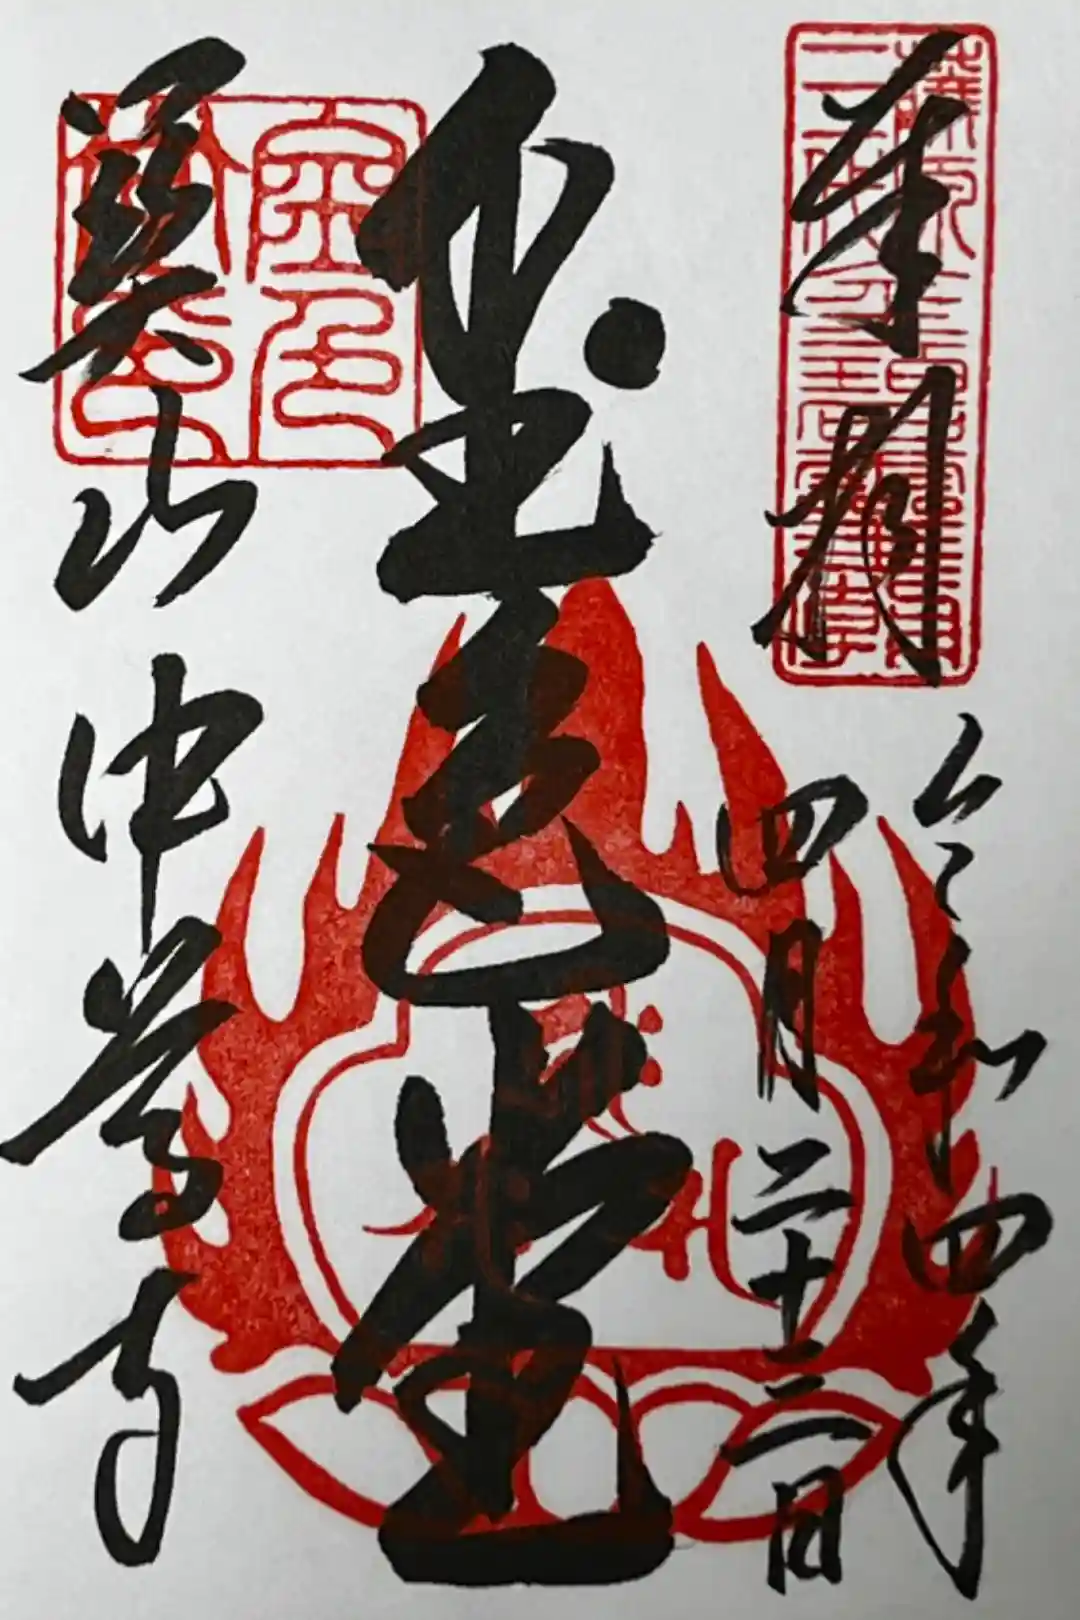 奉拝
令和四年
四月二十三日
金色堂
関山中尊寺
金色